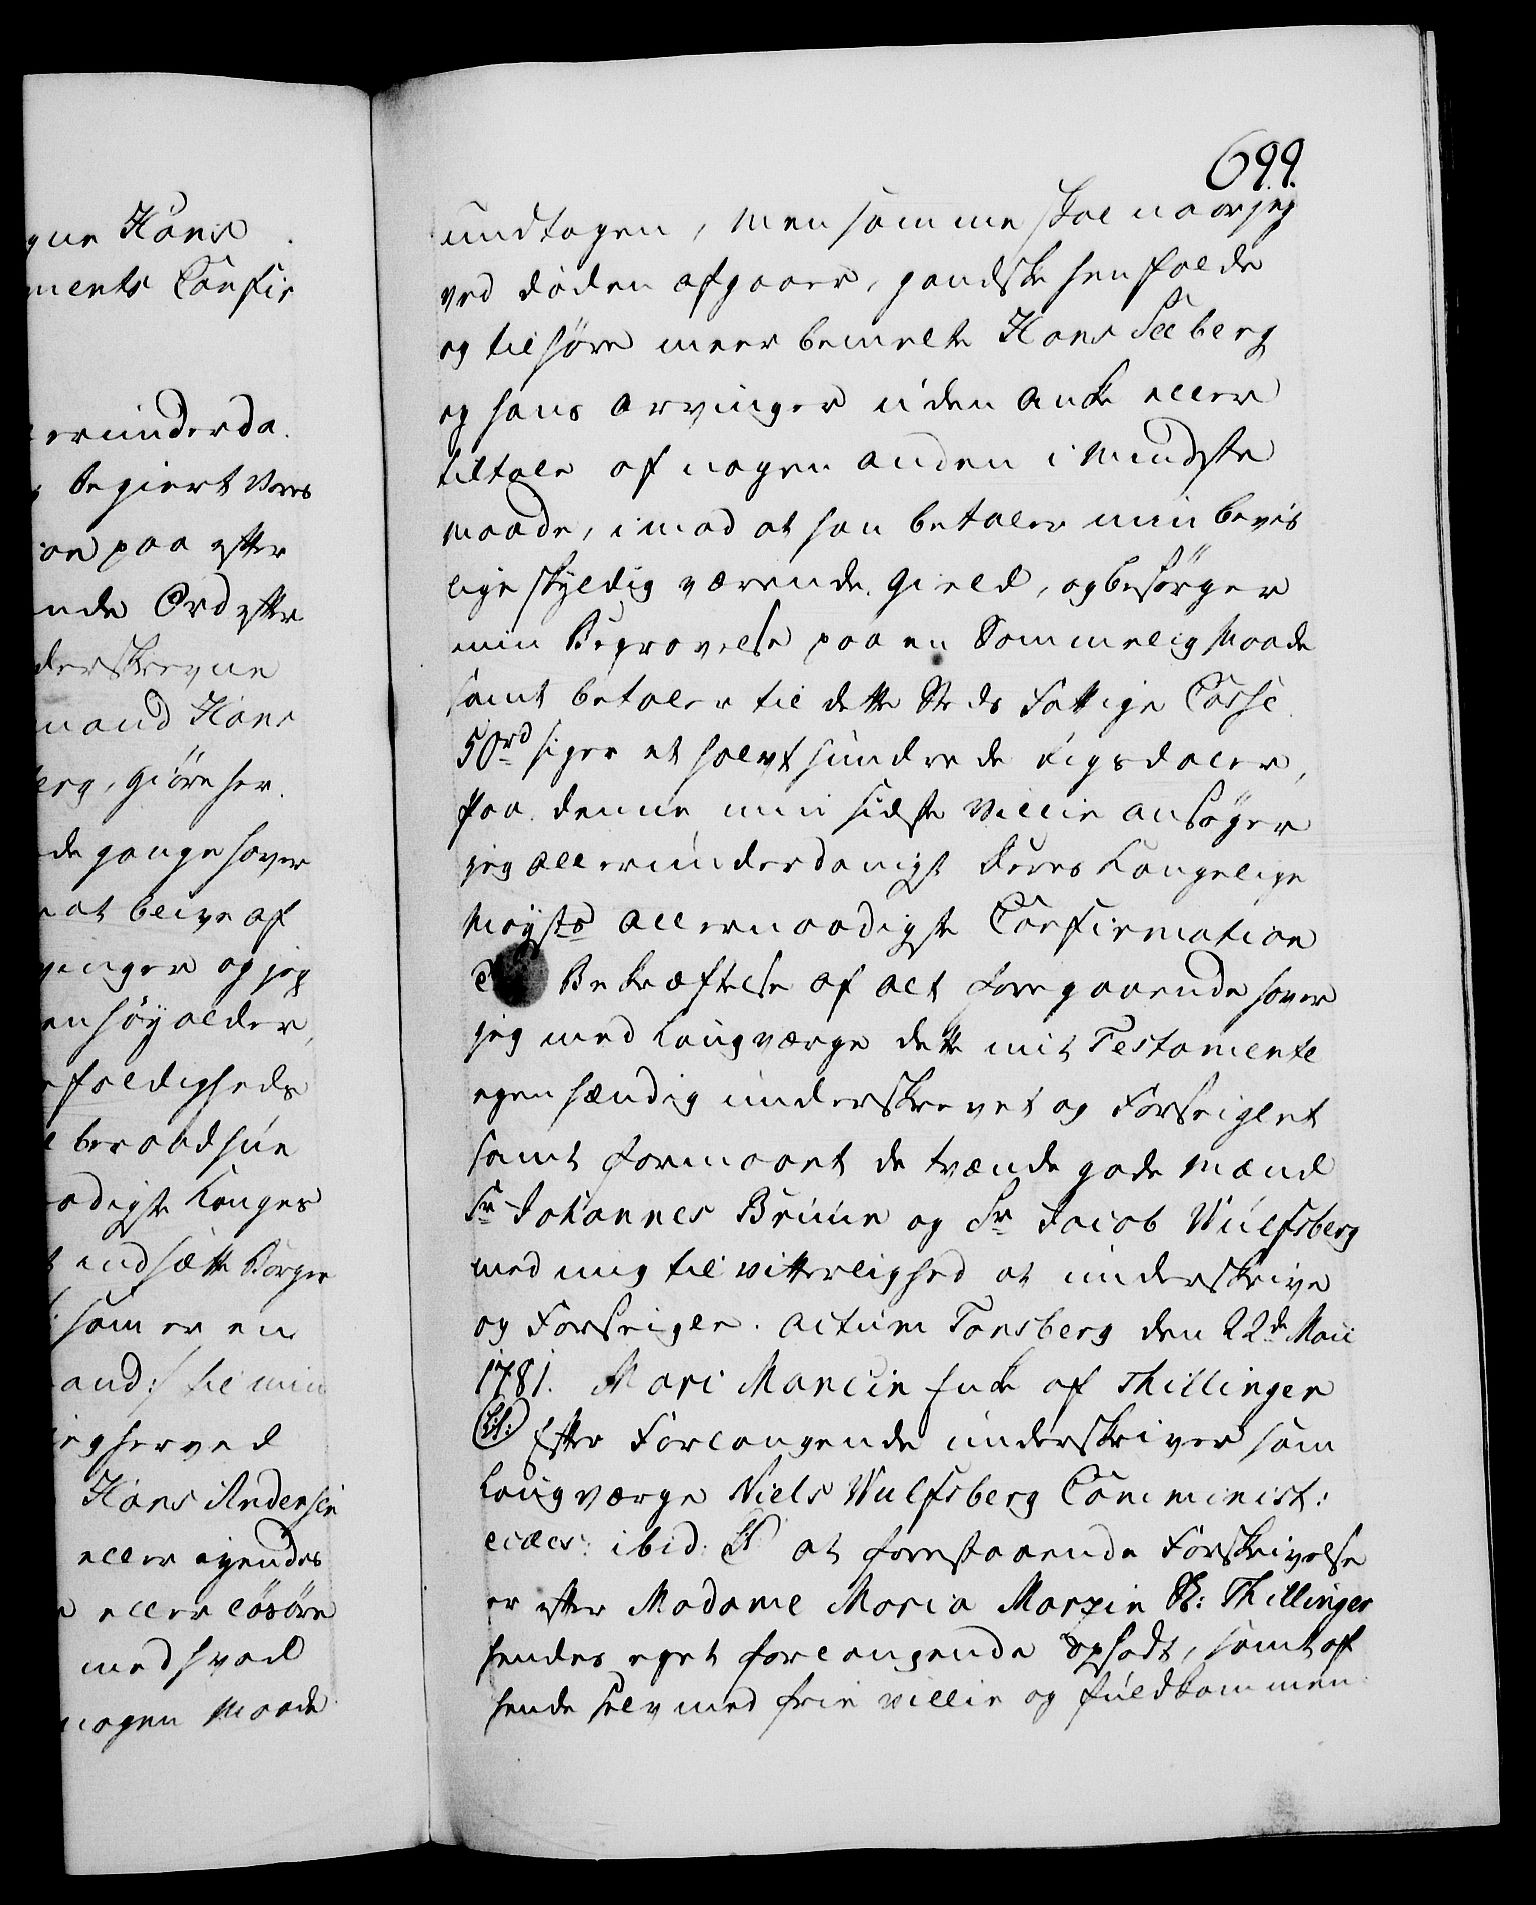 gne Hans
ments Confir
erunderda
begiert vores
paa efter
nde Ord efter
derskrevne
mand Hans
berg, giöre her
de gange haver
at blive af
vinger og jeg
en høy alder,
foldigheds
beraadhue
adigste Konges
indsætte Borger
som er en
and:/ til min
jeg herved
Hans Andersen
eller eyendes
eller løsøre
med hvad
nogen Maade
699.
undtagen, men samme skal naar jeg
ved döden afgaaer, gandske henfalde
og tilhøre meerbemelte Hans Seeberg
og hans Arvinger uden Anke eller
tiltale af nogen anden i Mindste
maade, imod at han betaler min bevis
lige skyldig værende Gield, og besörger
min Begravelse paa en Sømmelig Maade
samt betaler til dette Steds Fattige Casse
50rd siger et halvt hundrede Rigsdaler,
Paa denne min sidste Villie ansøger
jeg allerunderdanigst Deres Kongelige
Mayts allernaadigste Confirmation
Til Bekræftelse af alt foregaaende haver
jeg med Laugværge dette mit Testamente
egenhændig underskrevet og Forseiglet
samt formaaet de tvænde gode Mænd
Sr Johannes Bruun og Sr Jacob Wulfsberg
med mig til vitterlighed at underskrive
og Forseigle. Actum Tonsberg den 22de Maii
1781. Mari Marcin Enke af Thillinger
(LS.) Efter Forlangende underskriver som
Laugværge Niels Wulfsberg Comminist:
ibid: LS at forestaaende Forskrivelse
er efter Madame Maria Marzin Sl: Thillinger
hendes eget forlangende opsadt, samt af
hende selv med frie villie og fuldkommen